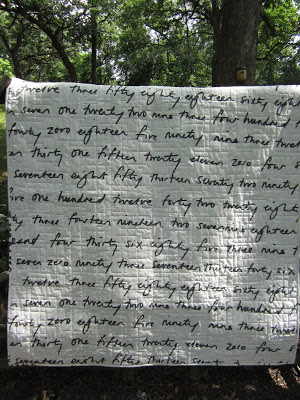 twelve three fifty eighty eighteen sixty eight
seven one twenty two nine three four hundred
forty zero eighteen five ninety nine three twent
en thirty one fifteen twenty eleven zero four
seventeen eight fifty thirteen seventy two ninety
ore one hundred twelve forty two twenty eight
ty three fourteen nineteen two seven nine eighteen
sand four thirty six eighty five three nine
seven zero ninety three seventeen thirteen forty six
twelve three fifty eighty eighteen sixty eight
seven one twenty two nine three four hundred
forty zero eighteen five ninety nine three twent
en thirty one fifteen twenty eleven zero four
seventeen eight fifty thirteen